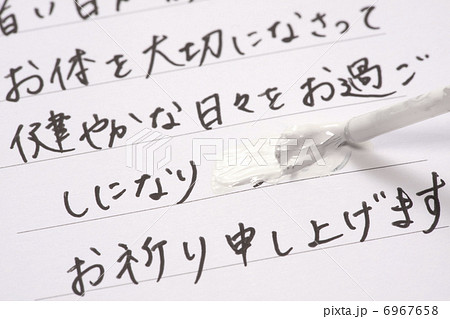 お体を大切になさって
健やかな日々をお過ご
しになり
お祈り申し上げます
PIXTA
pixta.jp - 6967658